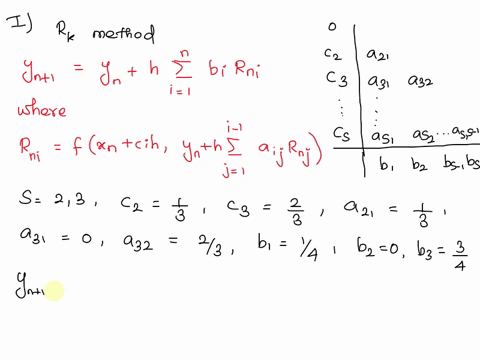 I) Rk method
y_{n+1} = y_n + h \sum_{i=1}^{n} b_i R_{ni}
where
R_{ni} = f(x_n + c_i h, y_n + h \sum_{j=1}^{i-1} a_{ij} R_{nj})
0
c_2 a_{21}
c_3 a_{31} a_{32}
⋮ ⋮
c_s a_{s1} a_{s2} ... a_{s,s-1}
b_1 b_2 b_{s-1} b_s
S = 2,3 , c_2 = 1/3 , c_3 = 2/3 , a_{21} = 1/3 ,
a_{31} = 0 , a_{32} = 2/3 , b_1 = 1/4 , b_2 = 0 , b_3 = 3/4
y_{n+1}